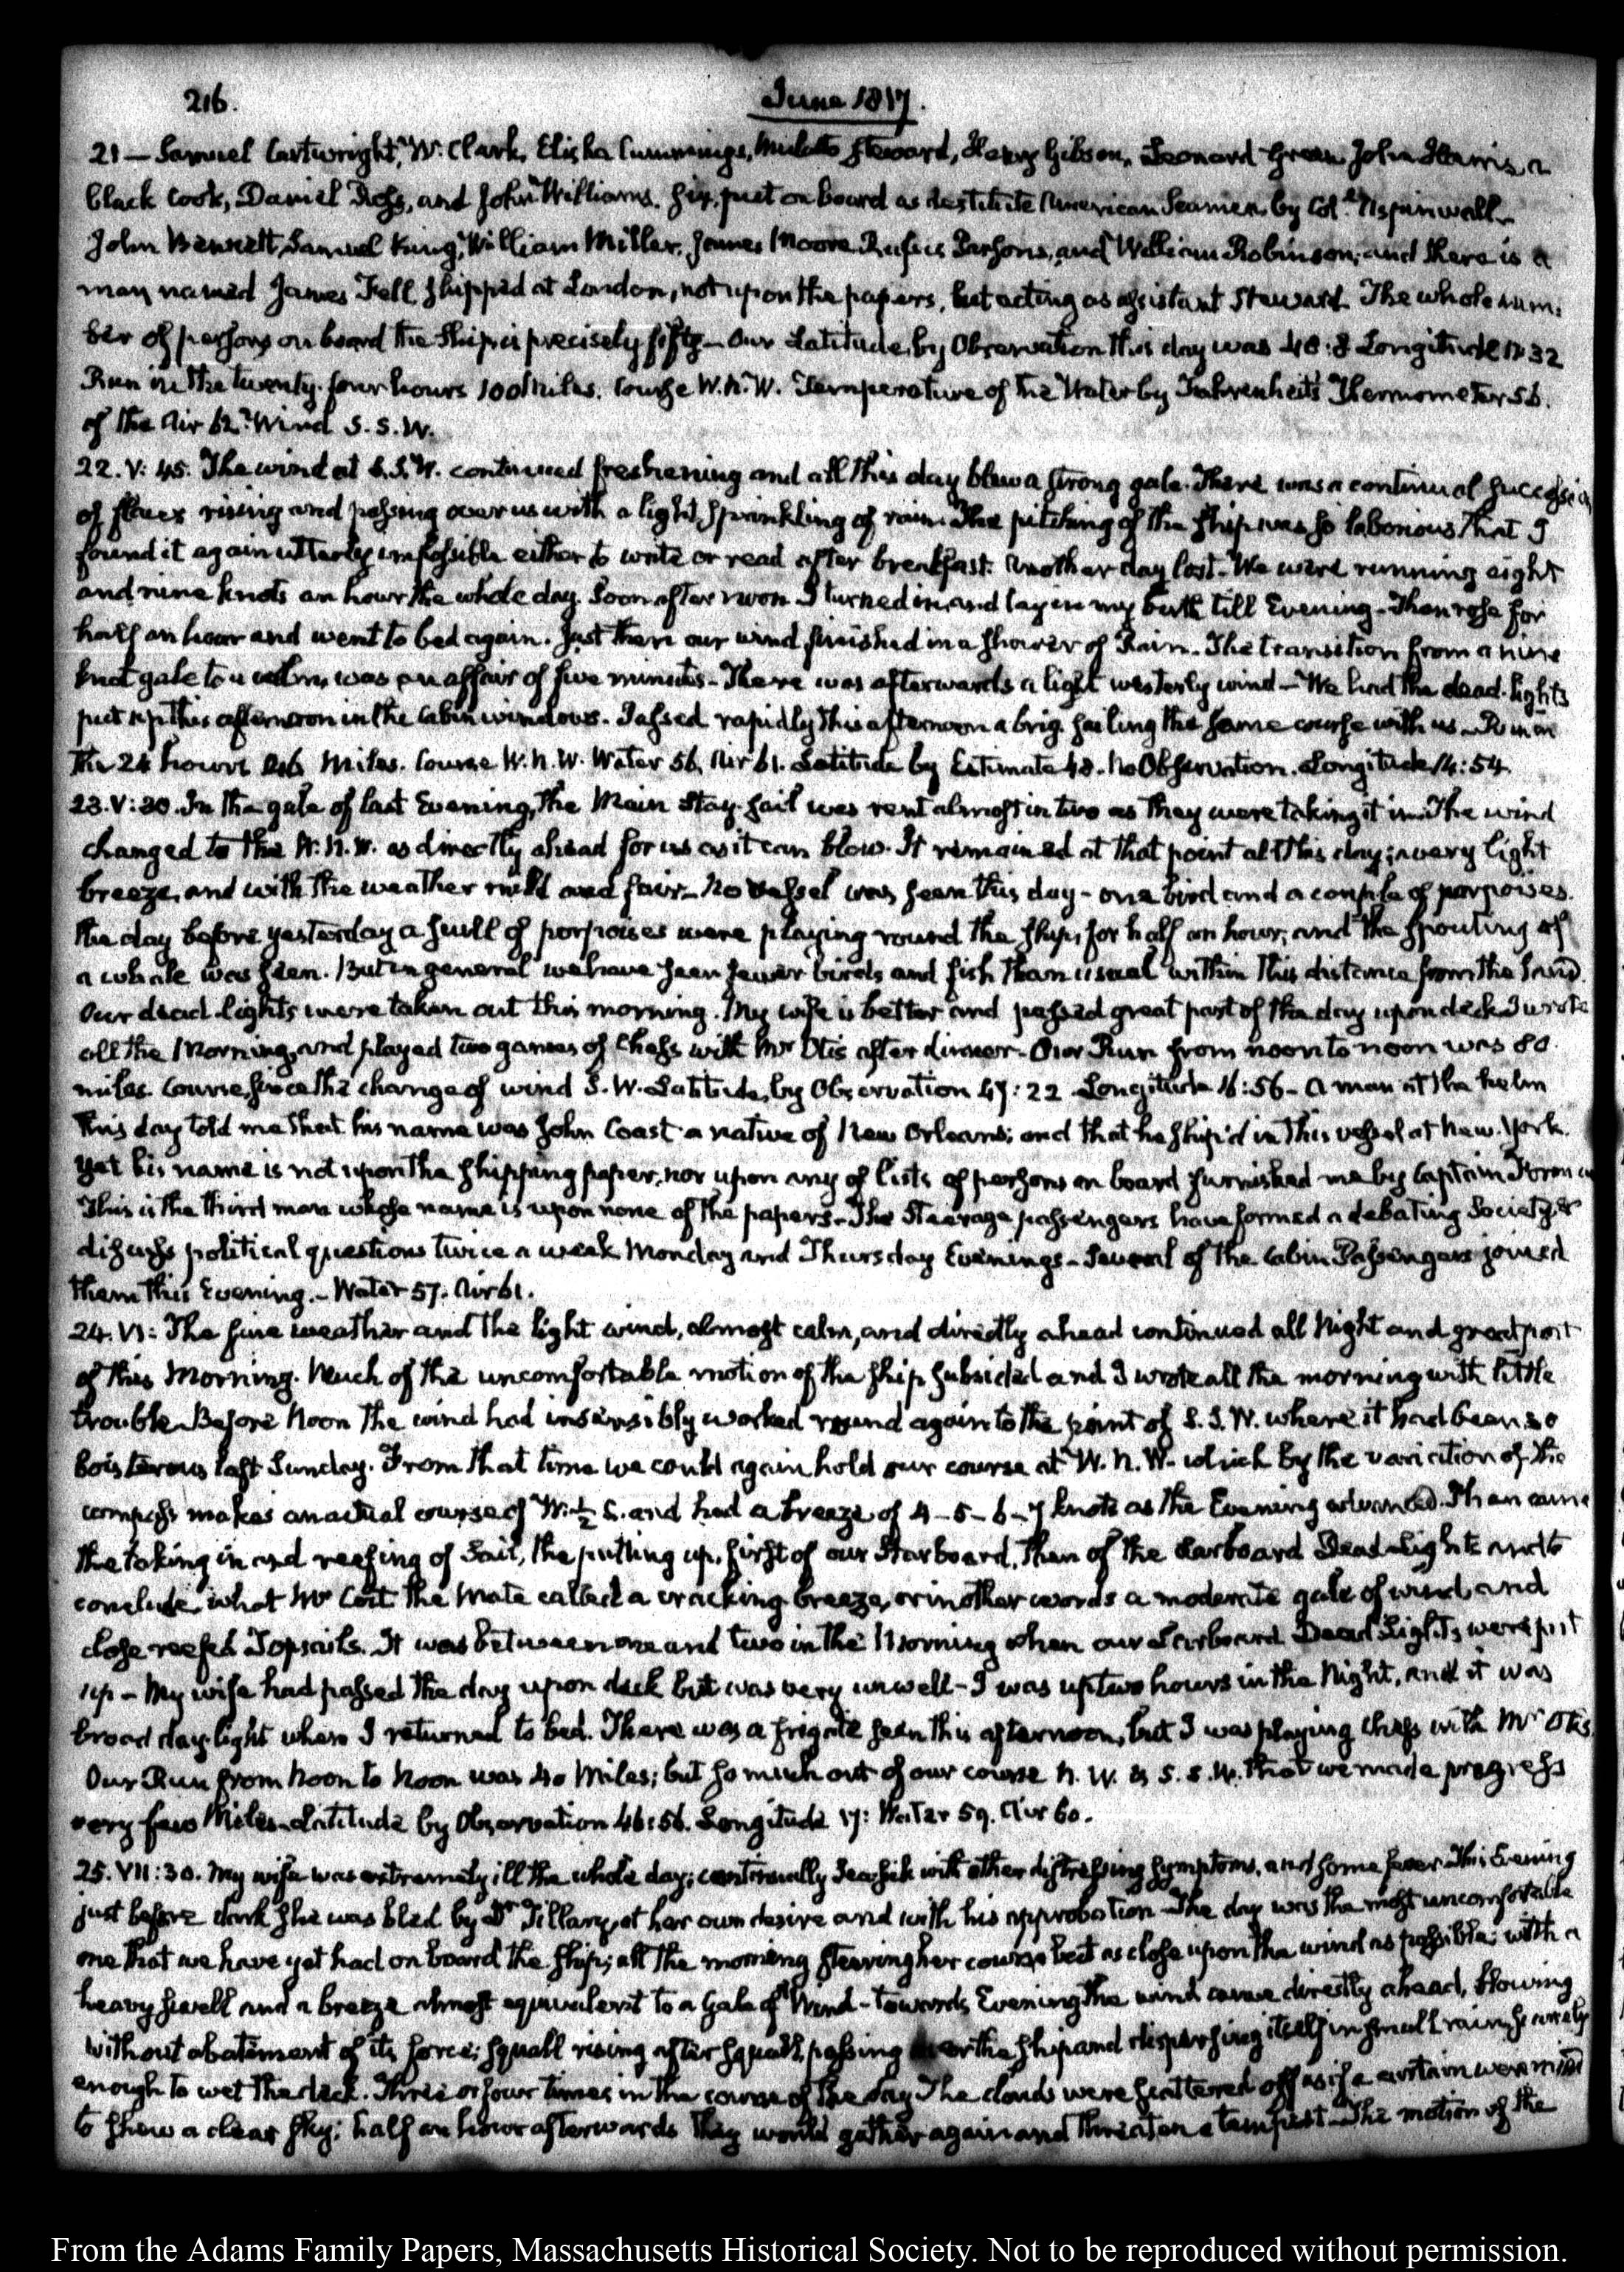 216.
June 1817.
21 — Samuel Cartwright, W. Clark, Elisha Cummings, Mulatto Steward, Henry Gibson, Leonard Green John Harris, a
black Cook, Daniel Ross, and John Williams. Six, put on board as destitute American Seamen, by Col. Aspinwall
John Bennett, Samuel King, William Miller, James Moore Rufus Parsons, and William Robinson; and there is a
man named James Fell shipped at London, not upon the papers, but acting as assistant Steward. The whole num-
ber of persons on board the Ship is precisely fifty — Our Latitude, by Observation this day was 48:8 Longitude 11:32
Run in the twenty-four hours 100 Miles. Course W.N.W. Temperature of the Water by Fahrenheit's Thermometer 56.
of the Air 62. Wind S.S.W.
22. V: 45. The wind at S.S.W. continued freshening and all this day blew a strong gale. There was a continual succession
of rising and passing over us with a light sprinkling of rain. The pitching of the ship was so laborious that I
found it again utterly impossible either to write or read after breakfast. Another day lost — We were running eight
and nine knots an hour the whole day. Soon after noon I turned in, and lay in my birth till Evening — Then rose for
half an hour and went to bed again. Just then our wind finished in a shower of Rain — The transition from a nine
knot gale to a calm, was an affair of five minutes — There was afterwards a light westerly wind — We had the dead-lights
put up this afternoon in the Cabin windows. Passed rapidly this afternoon a brig sailing the same course with us — Run in
the 24 hours Miles. Course W.N.W. Water 56, Air 61. Latitude by Estimate 48. No Observation. Longitude 14:54.
23. V:30. In the gale of last Evening, the Main Stay-sail was rent almost in two as they were taking it in. The wind
changed to the W.N.W. as directly ahead for us as it can blow. It remained at that point all this day; a very light
breeze, and with the weather mild and fair — No vessel was seen this day — one bird and a couple of porpoises.
The day before yesterday a scull of porpoises were playing round the ship, for half an hour; and the spouting of
a whale was seen. But in general we have seen fewer birds and fish than usual within this distance from the land.
Our dead-lights were taken out this morning. My wife is better and passed great part of the day upon deck. I wrote
all the Morning, and played two games of Chess with Mr Otis after dinner — Our Run from noon to noon was 80
miles. Course, since the change of wind S.W. Latitude, by Observation 47:22 Longitude 16:56 — A man at the helm
this day told me that his name was John Coast a native of New Orleans; and that he ship'd in this vessel at New York.
Yet his name is not upon the shipping paper, nor upon any of lists of persons on board furnished me by Captain Forman
This is the third man whose name is upon none of the papers — The Steerage passengers have formed a debating Society to
discuss political questions twice a week Monday and Thursday Evenings — Several of the Cabin Passengers joined
them this Evening. — Water 57. Air 61.
24. VI: The fine weather and the light wind, almost calm, and directly ahead continued all Night and great part
of this Morning. Much of the uncomfortable motion of the ship subsided and I wrote all the morning with little
trouble. Before Noon the wind had insensibly worked round again to the point of S.S.W. where it had been so
boisterous last Sunday. From that time we could again hold our course at W.N.W. which by the variation of the
compass makes an actual course of W. ½ S. and had a breeze of 4-5-6-7 knots as the Evening advanced. Then came
the taking in and reefing of Sail, the putting up, first of our Starboard, then of the Larboard Dead-lights and to
conclude, what Mr the Mate called a cracking breeze, or in other words a moderate gale of wind, and
close reefed Topsails. It was between one and two in the Morning when our Larboard Dead Lights were put
up — My wife had passed the day upon deck but was very unwell — I was up two hours in the Night, and it was
broad day-light when I returned to bed. There was a frigate seen this afternoon, but I was playing chess with Mr Otis.
Our Run from Noon to Noon was 40 Miles; but so much out of our course N.W. & S.S.W. that we made progress
very few Miles — Latitude by Observation 46:56. Longitude 17: Water 59. Air 60.
25. VII:30. My wife was extremely ill the whole day; continually Sea-sick with other distressing symptoms, and some fever. This Evening
just before dark she was bled by Dr Tillary, at her own desire and with his approbation — The day was the most uncomfortable
one that we have yet had on board the ship; all the morning steering her course but as close upon the wind as possible; with a
heavy swell and a breeze almost equivalent to a Gale of Wind — towards Evening the wind came directly ahead, blowing
without abatement of its force; squall rising after squall, passing over the ship and dispersing itself in small rain, scarcely
enough to wet the deck. Three or four times in the course of the day the clouds were scattered off as if a curtain were
to shew a clear sky; half an hour afterwards they would gather again and threaten a tempest — The motion of the
From the Adams Family Papers, Massachusetts Historical Society. Not to be reproduced without permission.